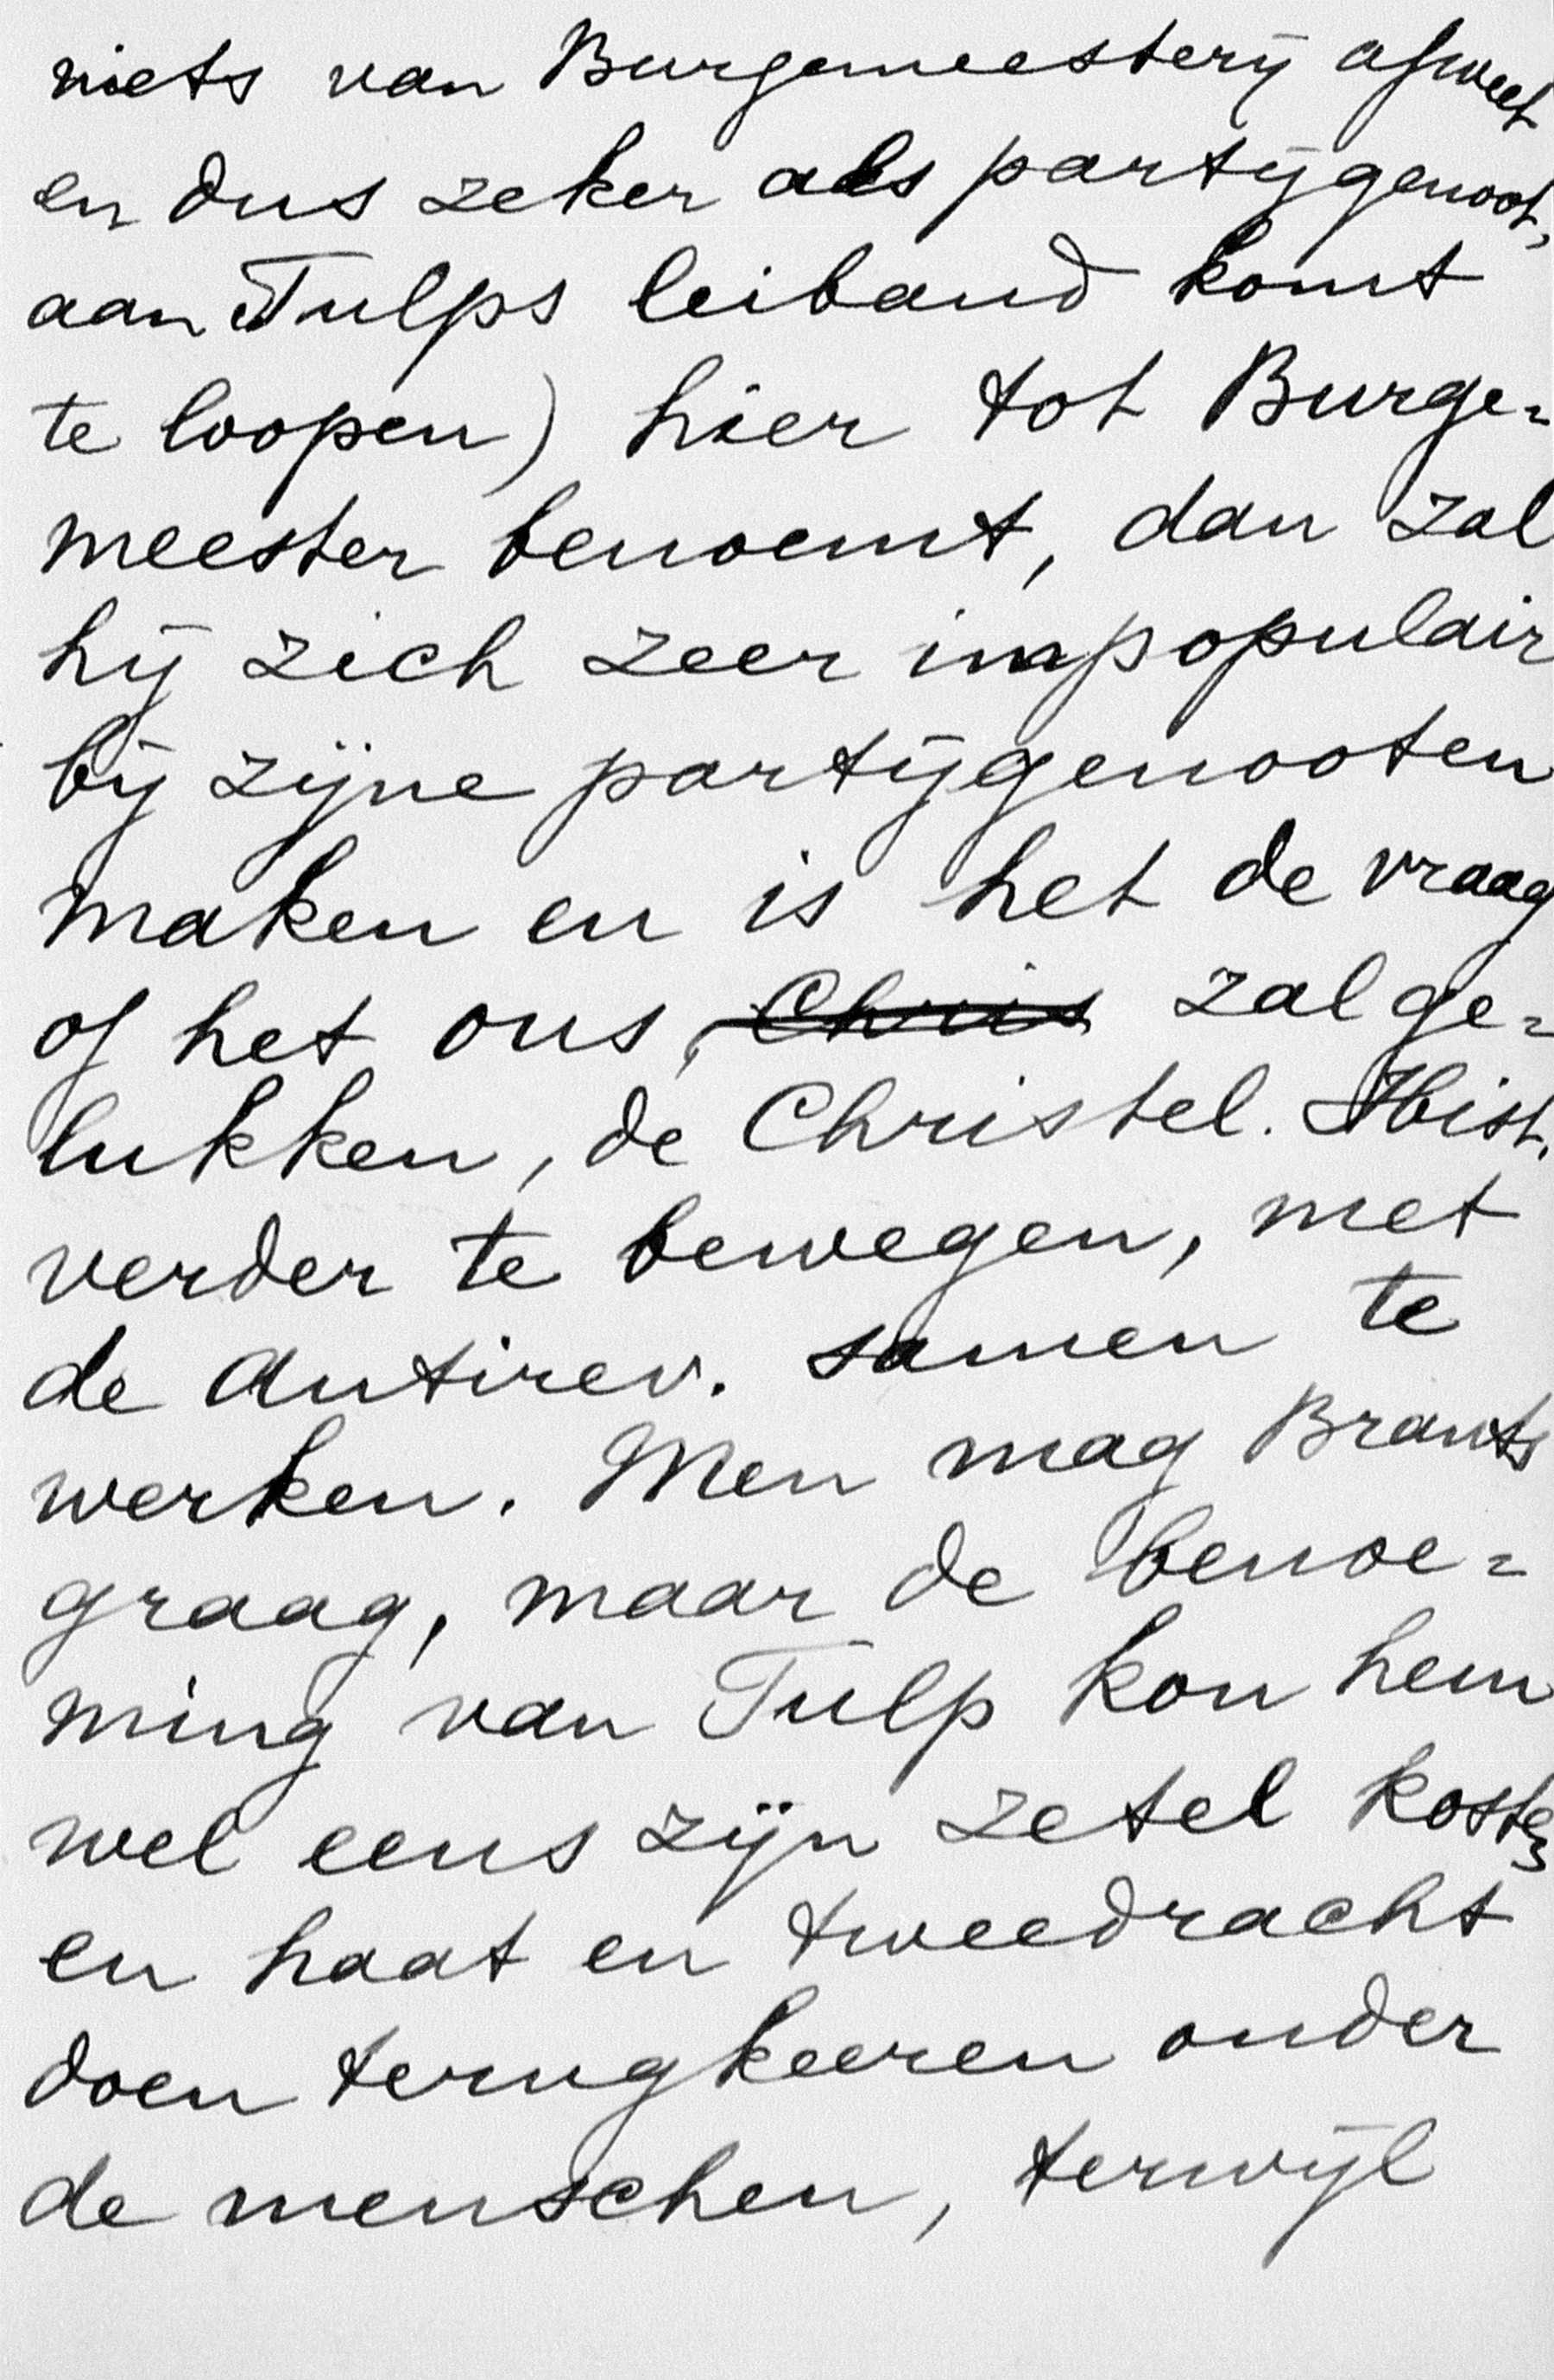 niets van Burgemeesterij afweet
en dus zeker als partijgenoot,
aan Tulps leiband komt
te loopen) hier tot Burge=
meester benoemt, dan zal
hij zich zeer impopulair
bij zijne partijgenooten
maken en is het de vraag
of het ons, Chris zal ge=
lukken, de Christel. Hist.
verder te bewegen, met
de Antirev. samen te
werken. Men mag Brants
graag, maar de benoe=
ming van Tulp kon hem
wel eens zijn zetel kosten
en haat en tweedracht
doen terugkeeren onder
de menschen, terwijl